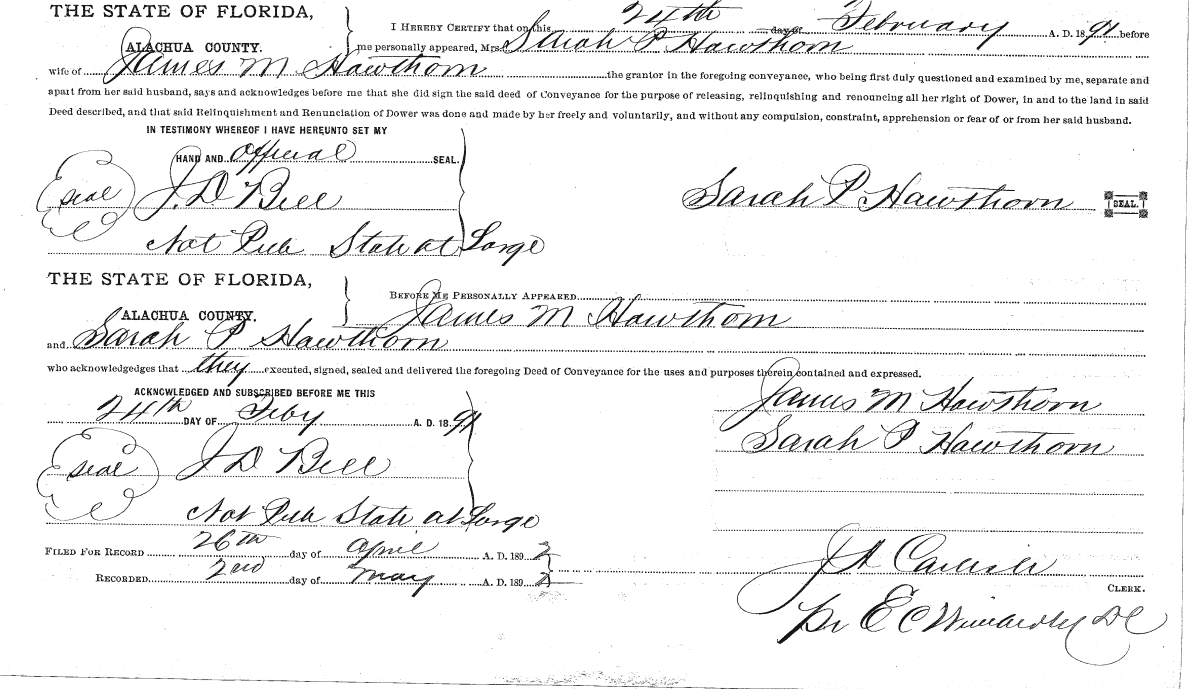 THE STATE OF FLORIDA,
ALACHUA COUNTY.
I HEREBY CERTIFY that on this 24th day of February A. D. 1891 before
me personally appeared, Mrs. Sarah P Hawthorn
wife of James M Hawthorn the grantor in the foregoing conveyance, who being first duly questioned and examined by me, separate and
apart from her said husband, says and acknowledges before me that she did sign the said deed of Conveyance for the purpose of releasing, relinquishing and renouncing all her right of Dower, in and to the land in said
Deed described, and that said Relinquishment and Renunciation of Dower was done and made by her freely and voluntarily, and without any compulsion, constraint, apprehension or fear of or from her said husband.
IN TESTIMONY WHEREOF I HAVE HEREUNTO SET MY
HAND AND Official SEAL.
seal J. D Bell
Sarah P Hawthorn SEAL.
Not Pub State at Large
THE STATE OF FLORIDA,
ALACHUA COUNTY.
BEFORE ME PERSONALLY APPEARED
James M Hawthorn
and Sarah P Hawthorn
who acknowledgedges that they executed, signed, sealed and delivered the foregoing Deed of Conveyance for the uses and purposes therein contained and expressed.
ACKNWLEDGED AND SUBSCRIBED BEFORE ME THIS
24th DAY OF Feby A. D. 1891
James M Hawthorn
Sarah P Hawthorn
seal J D Bell
Not Pub State at Large
FILED FOR RECORD 26th day of April A. D. 1892
RECORDED 2nd day of May A. D. 1892
J A Carlisle
CLERK.
Pr E C DC